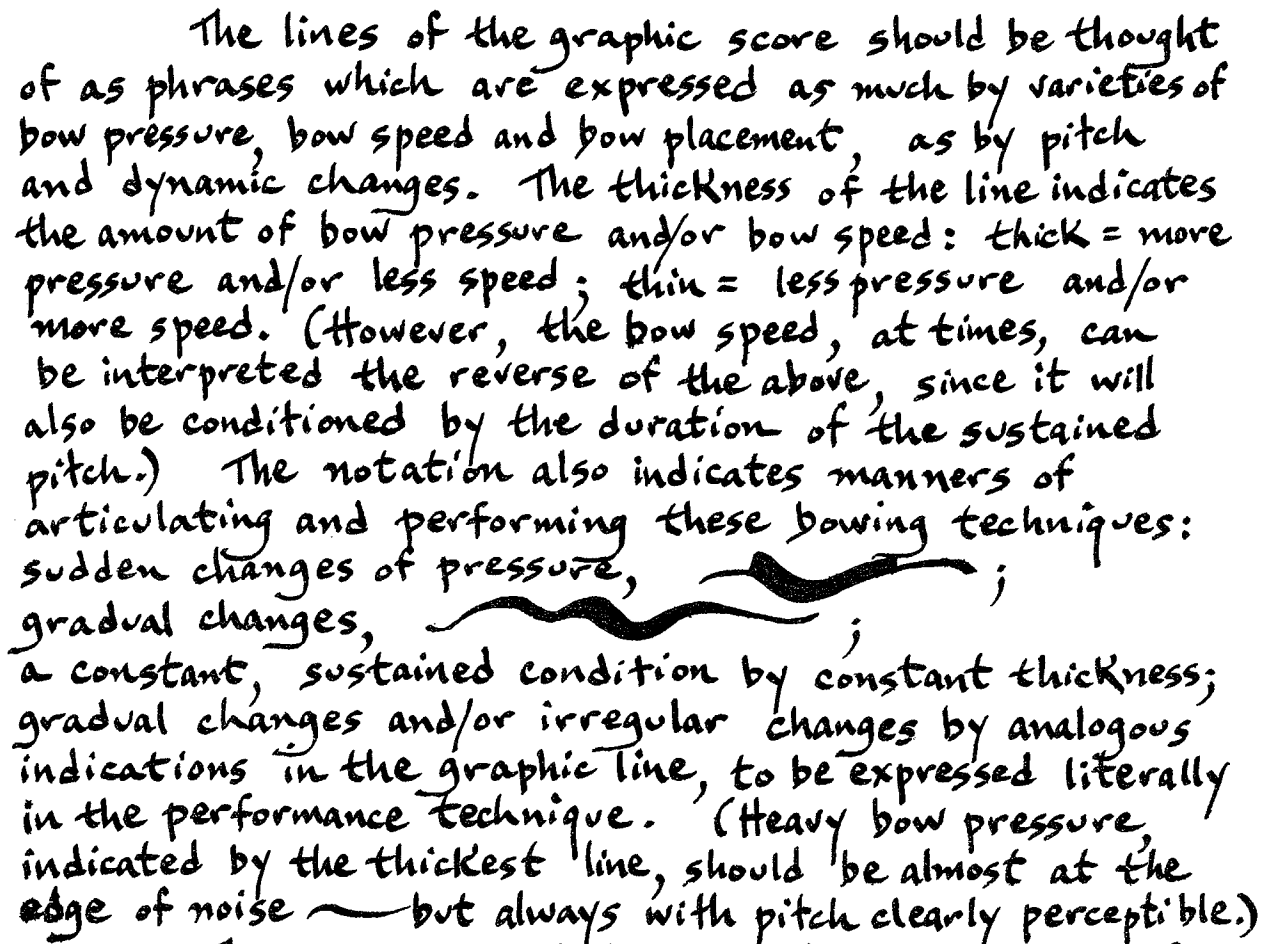 The lines of the graphic score should be thought
of as phrases which are expressed as much by varieties of
bow pressure, bow speed and bow placement, as by pitch
and dynamic changes. The thickness of the line indicates
the amount of bow pressure and/or bow speed: thick = more
pressure and/or less speed; thin = less pressure and/or
more speed. (However, the bow speed, at times, can
be interpreted the reverse of the above, since it will
also be conditioned by the duration of the sustained
pitch.) The notation also indicates manners of
articulating and performing these bowing techniques:
sudden changes of pressure, ;
gradual changes, ;
a constant, sustained condition by constant thickness;
gradual changes and/or irregular changes by analogous
indications in the graphic line, to be expressed literally
in the performance technique. (Heavy bow pressure,
indicated by the thickest line, should be almost at the
edge of noise — but always with pitch clearly perceptible.)